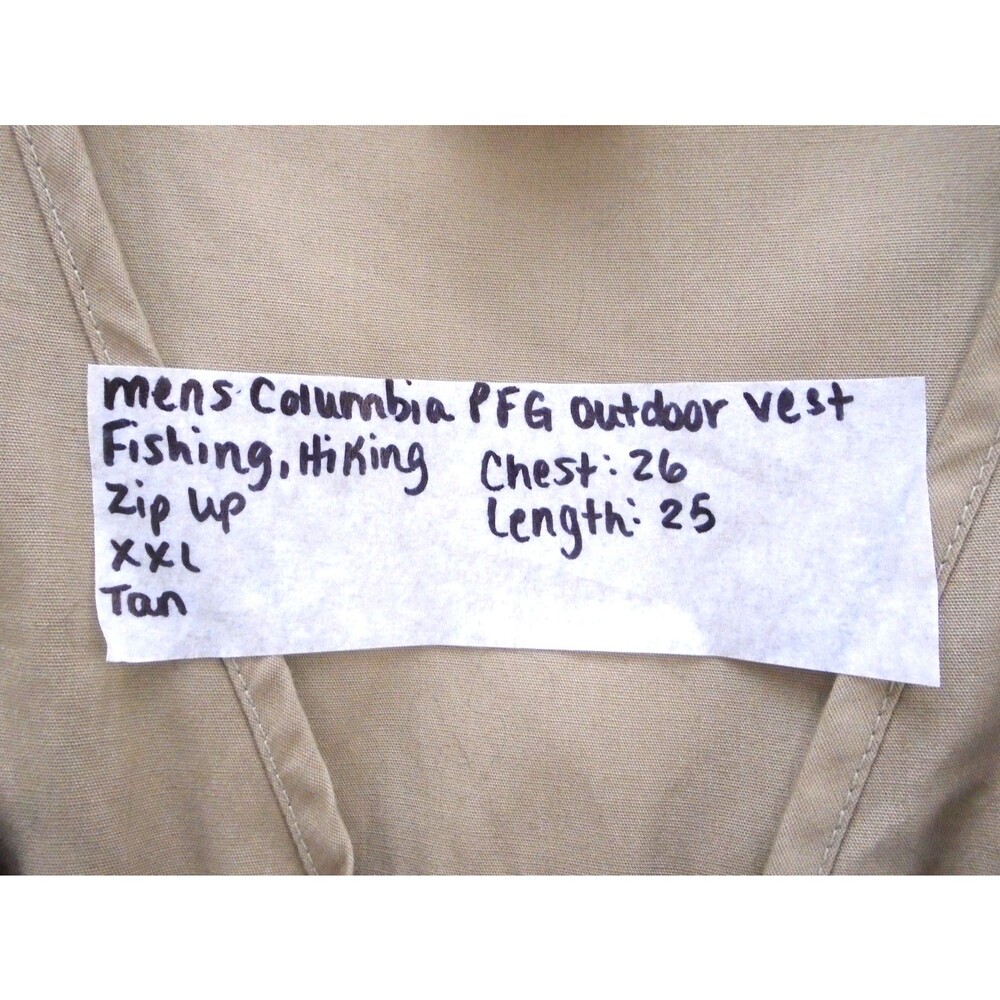 mens Columbia PFG outdoor vest
Fishing, Hiking
Zip up
XXL
Tan
Chest: 26
Length: 25